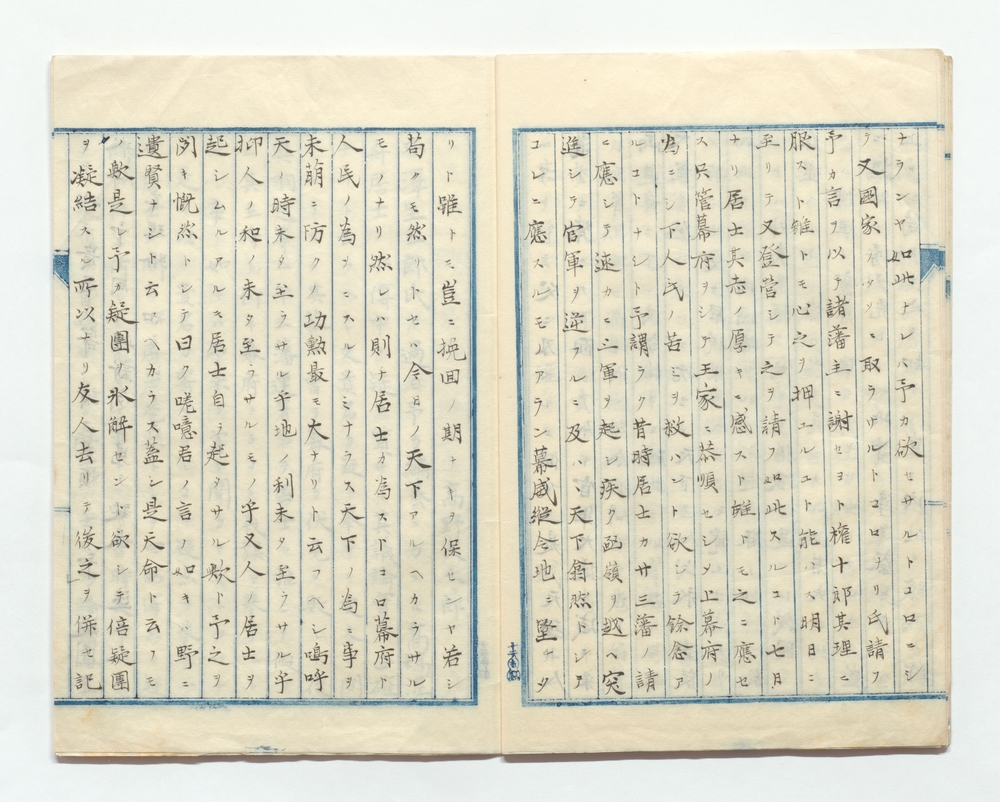 ナランヤ如此ナレハ予カ欲セサルトコロニシ
テ又國家ノ為ニ取ラサルトコロナリ氏請フ
予カ言ヲ以テ諸藩主ニ謝セヨト権十郎其理ニ
服スト雖トモ心之ヲ押エルエト能ハス明日ニ
至リテ又登營シテ之ヲ請フ如此スルコト七日
ナリ居士其志ノ厚キニ感スト雖トモ之ニ應セ
ス只管幕府ヲシテ王家ニ恭順セシメ上幕府ノ
為ニシ下人民ノ苦ミヲ救ハント欲シテ餘念ア
ルコトナシト予謂ラク昔時居士カ廿三藩ノ請
ニ應シテ速カニ三軍ヲ起シ疾ク函嶺ヲ越ヘ突
進シテ官軍ヲ逆フルニ及ハヽ天下翕然トシテ
コレニ應スルモノアラン幕威縦令地ニ墜チタ
リト雖トモ豈ニ挽回ノ期ナキヲ保センヤ若シ
苟クモ然リトセハ今日ノ天下アルヘカラサル
モノナリ然レハ則ナ居士カ為ストコロ幕府ト
人民ノ為メニスルノミナラス天下ノ為ニ事ヲ
未萠ニ防クノ功勲最モ大ナリト云フヘシ嗚呼
天ノ時未タ至ラサル乎地ノ利未タ至ラサル乎
抑人ノ和ノ未タ至ラサルモノ乎又人ノ居士ヲ
起シムルアルモ居士自ラ起タサル歟ト予之ヲ
聞キ慨然トシテ曰ク嗟噫君ノ言ノ如キハ野ニ
遺賢ナシト云フヘカラス蓋シ是天命ト云フモ
ノ歟是レ予カ疑團ヲ氷解セント欲シテ倍疑團
ヲ凝結スル所以ナリ友人去リテ後之ヲ併セ記